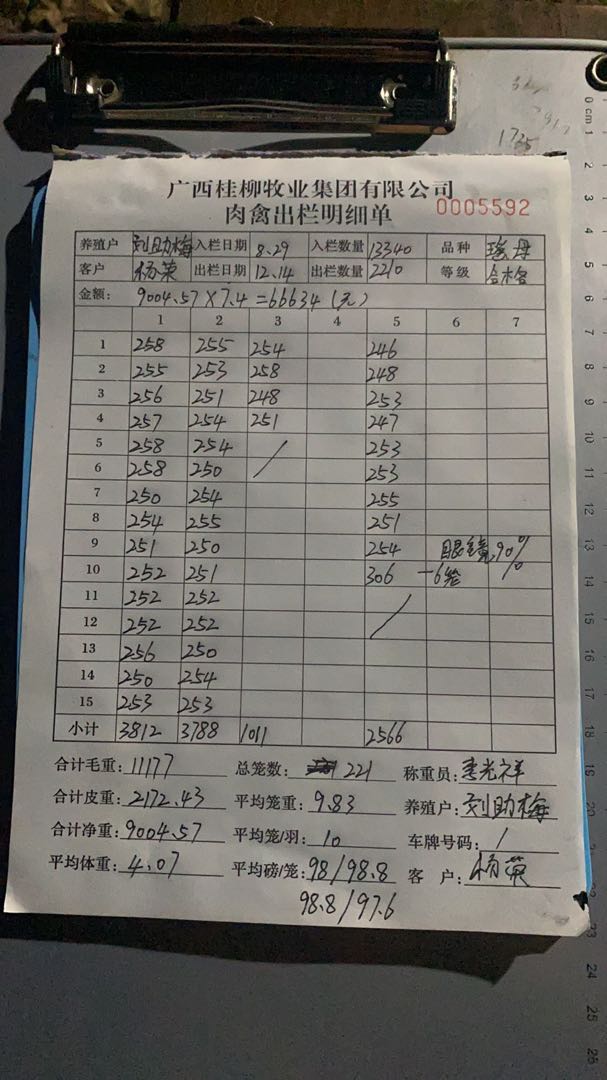 广西桂柳牧业集团有限公司
肉禽出栏明细单 0005592
养殖户 刘助梅 入栏日期 8.29 入栏数量 13340 品种 瑶母
客户 杨荣 出栏日期 12.14 出栏数量 2210 等级 合格
金额: 9004.57×7.4=66634(元)
1 2 3 4 5 6 7
1 258 255 254 246
2 255 253 258 248
3 256 251 248 253
4 257 254 251 247
5 258 254 / 253
6 258 250 253
7 250 254 255
8 254 255 251
9 251 250 254 眼镜90%
10 252 251 306 -6笼
11 252 252 /
12 252 252
13 256 250
14 250 254
15 253 253
小计 3812 3788 1011 2566
合计毛重: 11177 总笼数: 221 称重员: 李光祥
合计皮重: 2172.43 平均笼重: 9.83 养殖户: 刘助梅
合计净重: 9004.57 平均笼/羽: 10 车牌号码: /
平均体重: 4.07 平均磅/笼: 98/98.8 客户: 杨荣
98.8/97.6
1735
0 cm 1 2 3 4 5 6 7 8 9 10 11 12 13 14 15 16 17 18 19 20 23 24 25 26